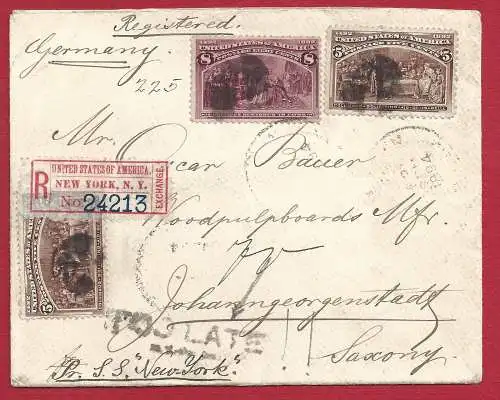 Registered.
Germany.
225
1492 1892
UNITED STATES OF AMERICA
8 8
1492 1892
UNITED STATES OF AMERICA
5 5
Mr. Oscar Bauer
R
UNITED STATES OF AMERICA.
NEW YORK, N. Y.
No. 24213
EXCHANGE.
Woodpulpboards Mfr.
UNITED STATES OF AMERICA
5
Johanngeorgenstadt
TOO LATE
Saxony.
Pr. S.S. "New York."